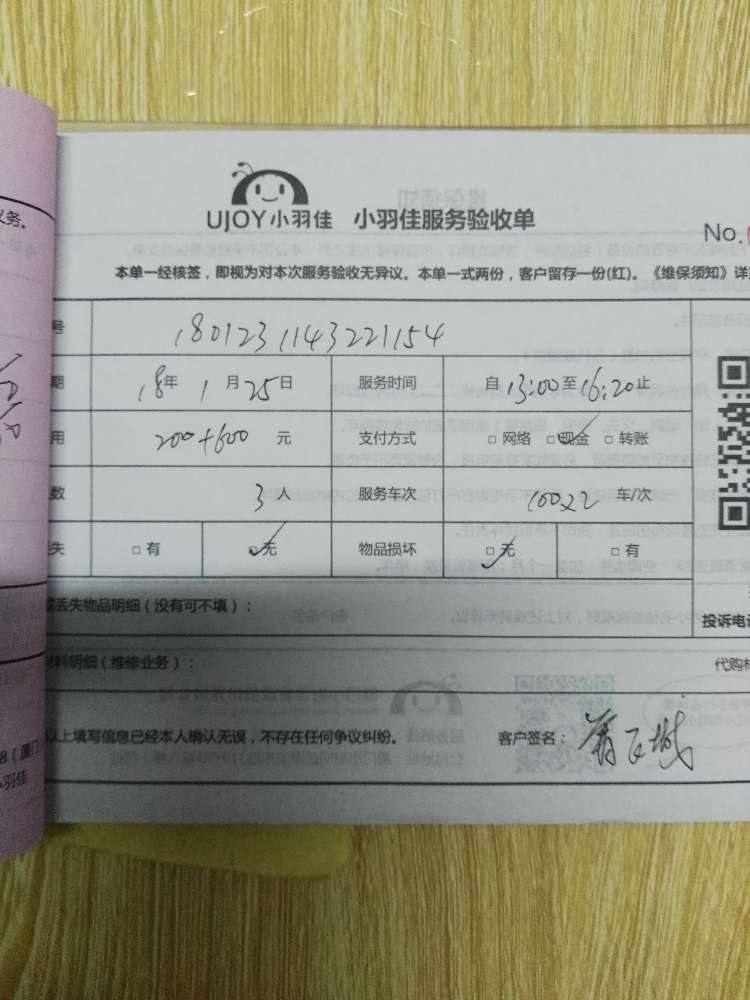 义务。
UJOY小羽佳 小羽佳服务验收单
No.
本单一经核签，即视为对本次服务验收无异议。本单一式两份，客户留存一份(红)。《维保须知》详
号 1801231143221154
期 18年 1月25日 服务时间 自13:00至16:20止
用 200+600 元 支付方式 □网络 □现金 □转账
数 3人 服务车次 10022 车/次
失 □有 □无 物品损坏 □无 □有
或丢失物品明细（没有可不填）：
投诉电话
材料明细（维修业务）： 代购材
以上填写信息已经本人确认无误，不存在任何争议纠纷。 客户签名：
8（厦门
小羽佳